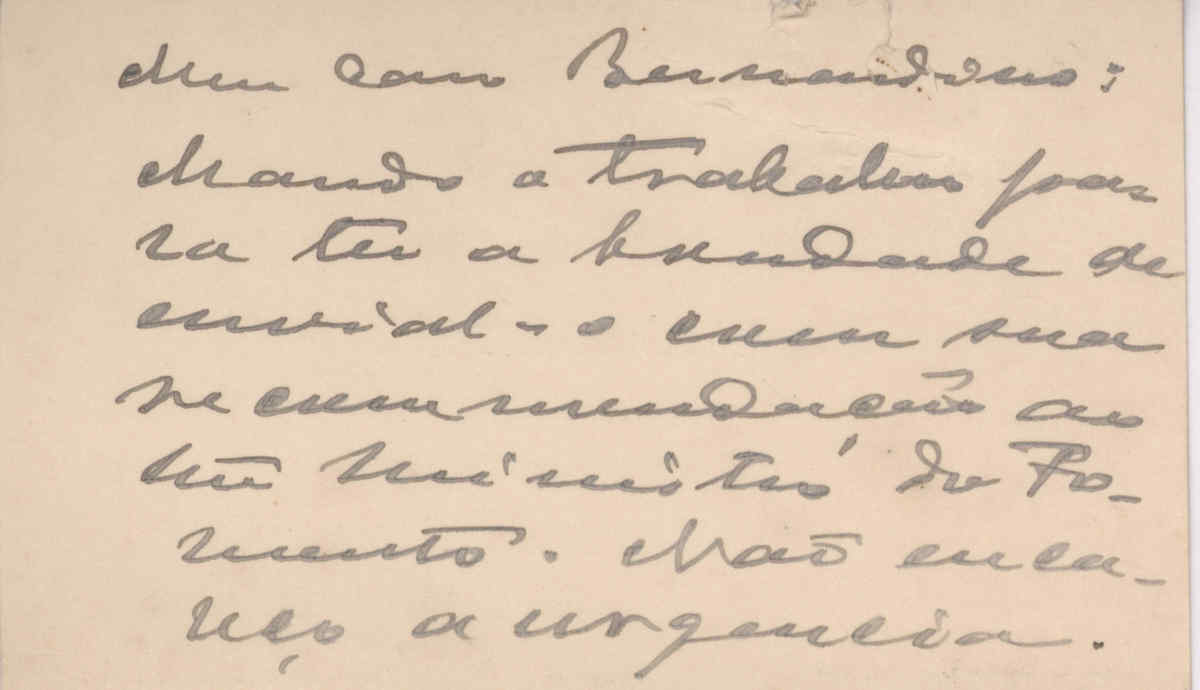 Meu caro Bernardino:
Mando o trabalho pa-
ra ter a bondade de
envial-o com sua
recommendação ao
ministro do Fo-
mento. Não enca-
reço a urgencia.